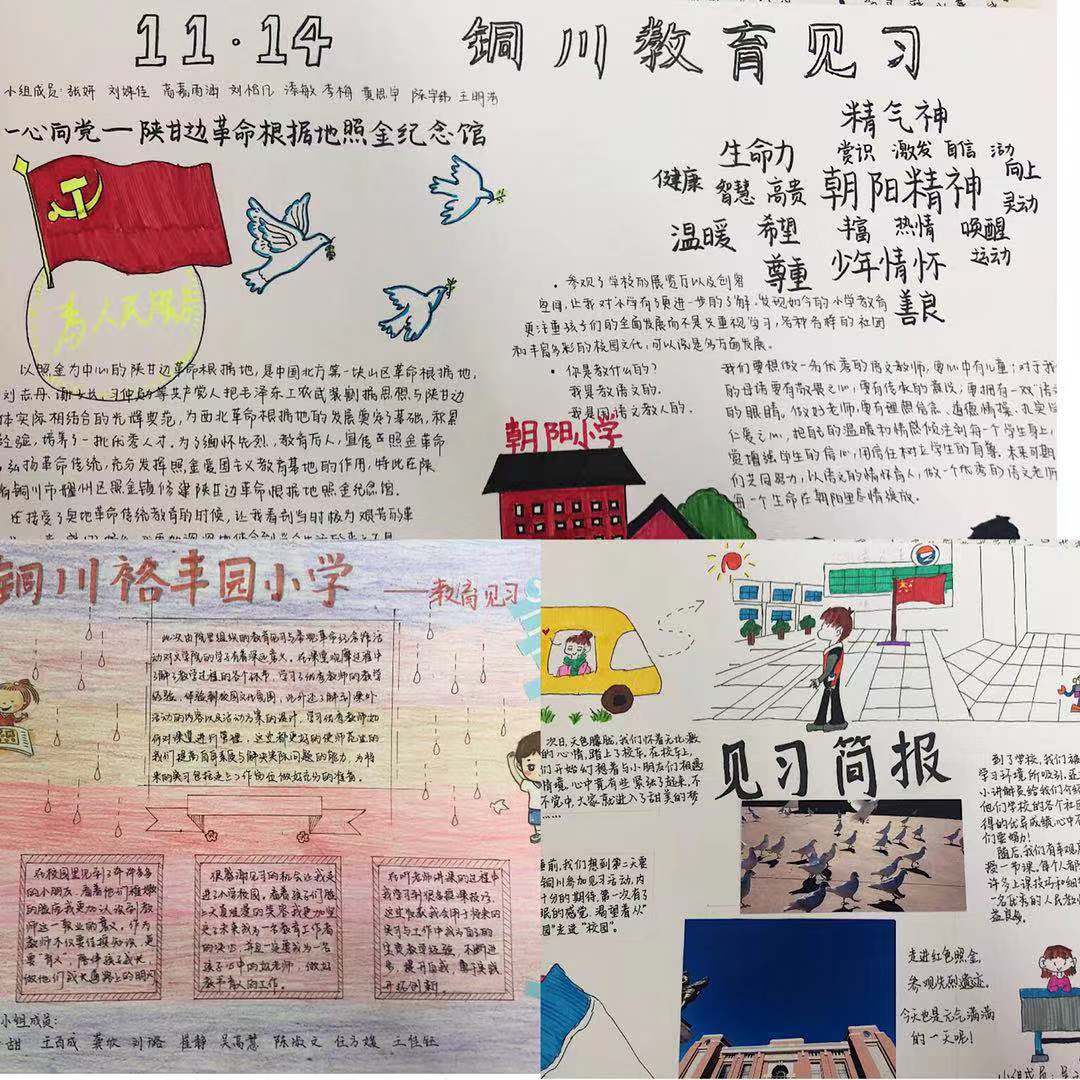 11·14 铜川教育见习
小组成员：张妍
一心向党一陕甘边革命根据地照金纪念馆
精气神
生命力 赏识 激发 自信 活动
健康 智慧 高贵 朝阳精神 向上
灵动
温暖 希望 丰富 热情 唤醒
尊重 少年情怀 运动
善良
为人民服务
·参观了学校的展览厅以及创客
空间，让我对小学有了更进一步的了解，发现如今的小学教育
更注重孩子们的全面发展而不是只重视学习，各种各样的社团
和丰富多彩的校园文化，可以说是多方面发展。
·你是教什么的？
我是教语文的。
我是用语文教人的。
朝阳小学
以照金为中心的陕甘边革命根据地，是中国北方第一块山区革命根据地，
刘志丹、谢子长、习仲勋等共产党人把毛泽东工农武装割据思想与陕甘边
体实际相结合的光辉典范，为西北革命根据地的发展奠定了基础，积累
经验，培养了一批优秀人才。为了缅怀先烈，教育后人，宣传照金革命
弘扬革命传统，充分发挥照金爱国主义教育基地的作用，特此在陕
铜川市耀州区照金镇修建陕甘边革命根据地照金纪念馆。
还接受了奥地革命传统教育的时候，让我看到当时极为艰苦的革
我们要想做一名优秀的语文教师，要心中有儿童；对于我
的母语要有敬畏之心，要有传承的意识，更拥有一双语文
的眼睛，做好老师，要有理想信念、道德情操、扎实
仁爱之心，把自己的温暖和情感倾注到每一个学生身上，
赏增强学生的信心，用信任树立学生的自尊。未来可期
们共同努力，以语文的情怀育人，做一个优秀的语文老师
每一个生命在朝阳里尽情绽放。
铜川裕丰园小学 ——教育见习
此次由院里组织的教育见习与参观革命纪念馆活
动对文学院的学子有着深远意义。在课堂观摩过程中
了解了教学过程的各个环节，学习了优秀教师的教学
经验，体验到校园文化氛围，此外还了解到课外
活动的内容以及活动方案的设计，学习优秀教师如
何对课堂进行掌握，这也都更好的使师范生的
我们提高自身素质与解决实际问题的能力，为将
来的实习包括走上工作岗位做好充分的准备。
在校园里见到了许许多多
的小朋友，看着他们稚嫩
的脸庞我更加认识到教
师这一职业的意义，作为
教师不仅要传授知识，更
要“育人”，陪伴孩子成长，
做他们成长道路上的明灯
很感谢见习的机会让我走
进小学校园，看着孩子们脸
上天真烂漫的笑容我更加坚
定了未来成为一名教育工作者
的决心，并且一定要成为一名
孩子心中的好老师，做好
教书育人的工作。
在听老师讲课的过程中
我学习到很多授课技巧，
这也加我会用于将来的
实习与工作中成为自己的
宝贵教学经验，不断进
步，提升自我，勇于实践
开拓创新。
小组成员：
甜 王百成 龚欣 刘潞 崔静 吴高慧 陈淑文
次日，天色朦胧，我们怀着无比激
的心情，踏上了校车，在校车上，
们开始幻想着与小朋友们相遇
情境，心中竟有些紧张了起来，不
不觉中，大家就进入了甜美的梦
见习简报
睡前，我们想到第二天要
铜川参加见习活动，内
十分的期待，第一次有了
眠的感觉，渴望着从“
园”走进“校园”。
到了学校，我们
学习环境所吸引，还
小讲解员给我们介绍
他们学校的各个社团
得的优异成绩，心中不
们要努力！
随后，我们有幸观
授一节课，每个人都
许多上课技巧和细
一名优秀的人民教
益良多。
走进红色照金，
参观先烈遗迹，
今天也是元气满满
的一天呢！
小组成员：